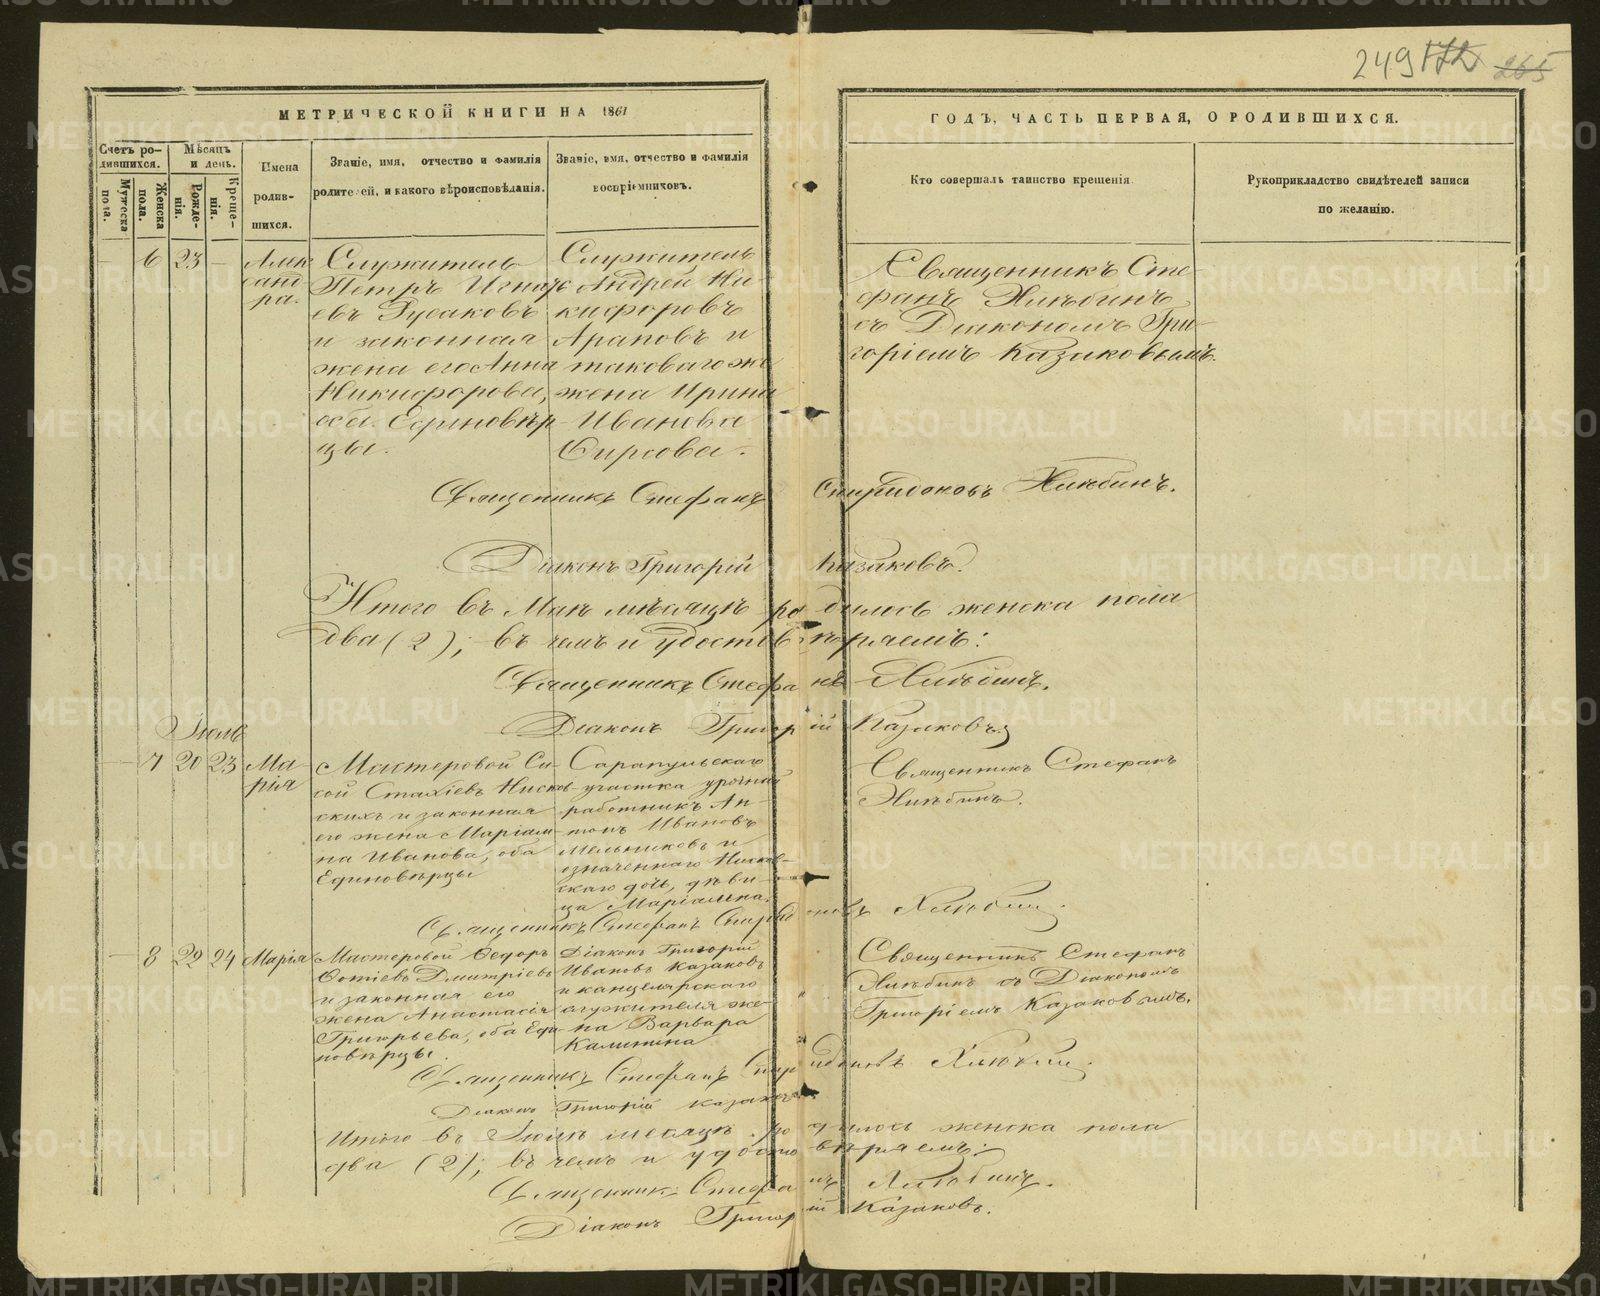 249 172 265
МЕТРИЧЕСКОЙ КНИГИ НА 1861
ГОДЪ, ЧАСТЬ ПЕРВАЯ, О РОДИВШИХСЯ.
Счетъ ро-
дившихся.
Мужеска
пола.
Женска
пола.
Мѣсяцъ
и день.
Рожде-
нія.
Креще-
нія.
Имена
родив-
шихся.
Званіе, имя, отчество и фамилія
родителей, и какого вѣроисповѣданія.
Званіе, имя, отчество и фамилія
воспріемниковъ.
Кто совершалъ таинство крещенія.
Рукоприкладство свидѣтелей записи
по желанію.
6 23 —
Алек
санд
ра.
Служитель
Петръ Игнать
евъ Русаковъ
и законная
жена его Анна
Никифорова,
оба Единовѣр
цы.
Служитель
Андрей Ни-
кифоровъ
Араповъ и
таковаго же
жена Ирина
Иванова
Сирсова.
Священникъ Сте-
фанъ Хлѣбинъ
съ Діакономъ Гри-
горіемъ Казаковымъ.
Священникъ Стефанъ Спиридоновъ Хлѣбинъ.
Діаконъ Григорій Казаковъ.
Итого въ Маѣ мѣсяцѣ родилось женска пола
два (2); въ чемъ и удостовѣряемъ:
Священникъ Стефанъ Хлѣбинъ.
Діаконъ Григорій Казаковъ
Іюль
7 20 23
Ма-
рія
Мастеровой Си-
сой Стахіевъ Нисков-
скихъ и законная
его жена Маріам-
на Иванова, оба
Единовѣрцы
Сарапульскаго
участка урочный
работникъ Ан-
тонъ Ивановъ
Мельниковъ и
означеннаго Нисков-
скаго дочь, дѣви-
ца Маріамна.
Священникъ Стефанъ
Хлѣбинъ.
Священникъ Стефанъ Спиридоновъ Хлѣбинъ.
8 22 24 Марія
Мастеровой Ѳедоръ
Фотіевъ Дмитріевъ
и законная его
жена Анастасія
Григорьева, оба Еди-
новѣрцы.
Діаконъ Григорій
Ивановъ Казаковъ
и канцелярскаго
служителя же-
на Варвара
Калинина
Священникъ Стефанъ
Хлѣбинъ съ Діакономъ
Григоріемъ Казаковымъ.
Священникъ Стефанъ Спиридоновъ Хлѣбинъ.
Діаконъ Григорій Казаковъ.
Итого въ Іюлѣ месяцѣ родилось женска пола
два (2); въ чемъ и удостовѣряемъ:
Священникъ Стефанъ Хлѣбинъ.
Діаконъ Григорій Казаковъ.
METRIKI.GASO-URAL.RU